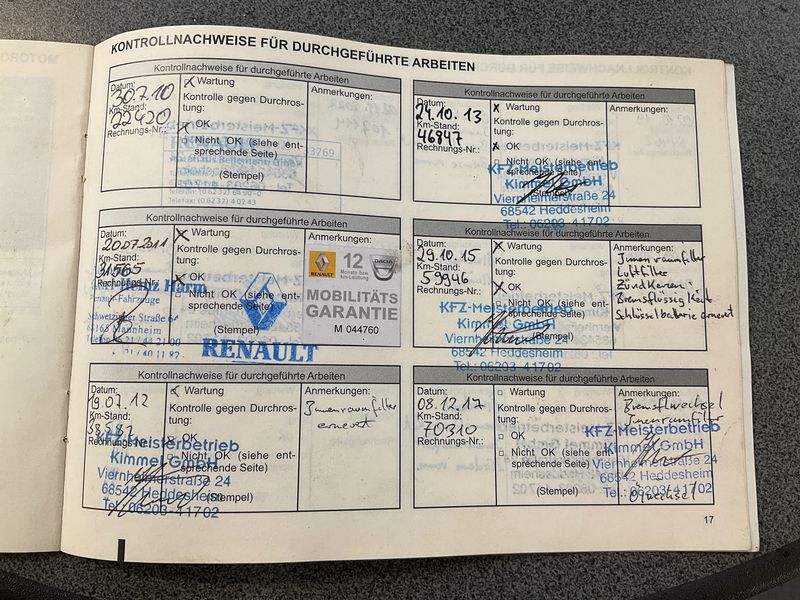 KONTROLLNACHWEISE FÜR DURCHGEFÜHRTE ARBEITEN
Kontrollnachweise für durchgeführte Arbeiten
Datum:
30.7.10
Km-Stand:
22420
Rechnungs-Nr.:
Wartung
Kontrolle gegen Durchros-
tung:
OK
Nicht OK (siehe ent-
sprechende Seite)
(Stempel)
Anmerkungen:
Kontrollnachweise für durchgeführte Arbeiten
Datum:
24.10.13
Km-Stand:
46847
Rechnungs-Nr.:
Wartung
Kontrolle gegen Durchros-
tung:
OK
Nicht OK (siehe ent-
sprechende Seite)
(Stempel)
Anmerkungen:
KFZ-Meisterbetrieb
Kimmel GmbH
Viernheimerstraße 24
68542 Heddesheim
Tel.: 06203-41702
Kontrollnachweise für durchgeführte Arbeiten
Datum:
20.07.2011
Km-Stand:
31565
Rechnungs-Nr.:
Wartung
Kontrolle gegen Durchros-
tung:
OK
Nicht OK (siehe ent-
sprechende Seite)
(Stempel)
Anmerkungen:
Renault-Fahrzeuge
68165 Mannheim
RENAULT
RENAULT
12
Monate bzw.
km-Leistung
DACIA
MOBILITÄTS
GARANTIE
M 044760
Kontrollnachweise für durchgeführte Arbeiten
Datum:
29.10.15
Km-Stand:
59946
Rechnungs-Nr.:
Wartung
Kontrolle gegen Durchros-
tung:
OK
Nicht OK (siehe ent-
sprechende Seite)
(Stempel)
Anmerkungen:
Innenraumfilter
Luftfilter
Zündkerzen
Bremsflüssigkeit
Schlüsselbatterie erneuert
KFZ-Meisterbetrieb
Kimmel GmbH
Viernheimerstraße 24
68542 Heddesheim
Tel.: 06203-41702
Kontrollnachweise für durchgeführte Arbeiten
Datum:
19.07.12
Km-Stand:
38582
Rechnungs-Nr.:
Wartung
Kontrolle gegen Durchros-
tung:
OK
Nicht OK (siehe ent-
sprechende Seite)
(Stempel)
Anmerkungen:
Innenraumfilter
erneuert
KFZ-Meisterbetrieb
Kimmel GmbH
Viernheimerstraße 24
68542 Heddesheim
Tel.: 06203-41702
Kontrollnachweise für durchgeführte Arbeiten
Datum:
08.12.17
Km-Stand:
70310
Rechnungs-Nr.:
Wartung
Kontrolle gegen Durchros-
tung:
OK
Nicht OK (siehe ent-
sprechende Seite)
(Stempel)
Anmerkungen:
Bremsflwechsel
Innenraumfilter
Ölwechsel
KFZ-Meisterbetrieb
Kimmel GmbH
Viernheimerstraße 24
68542 Heddesheim
Tel.: 06203-41702
17